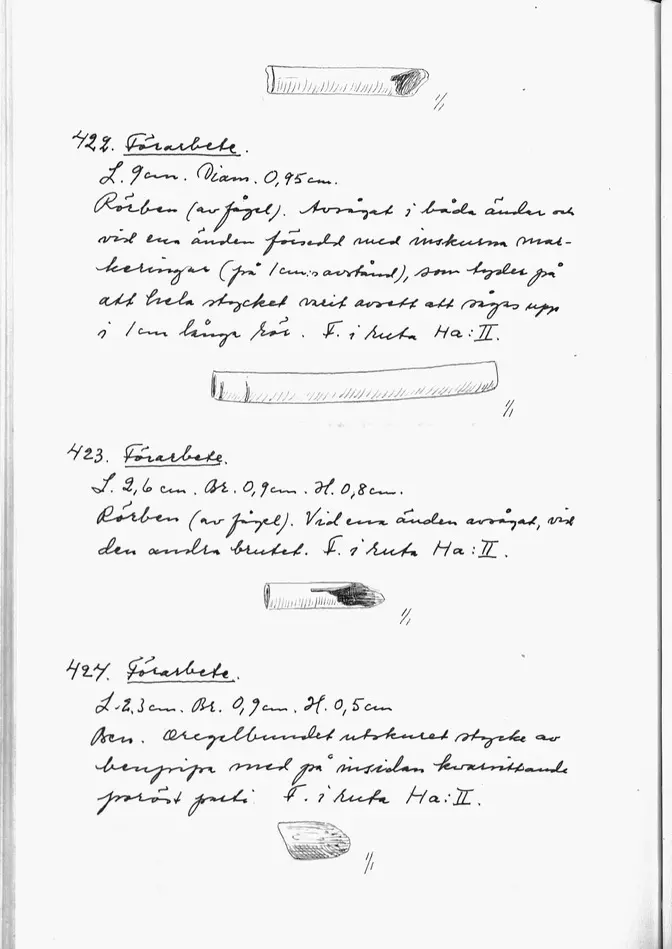 1/1
422. Förarbete.
L. 9 cm. Diam. 0,95 cm.
Rörben (av fågel). Avsågat i båda ändar och
vid ena änden försedd med inskurna mar-
keringar (på 1 cm:s avstånd), som tyder på
att hela stycket varit avsett att sågas upp
i 1 cm långa rör. F. i ruta Ha: II.
1/1
423. Förarbete.
L. 2,6 cm. Br. 0,9 cm. H. 0,8 cm.
Rörben (av fågel). Vid ena änden avsågat, vid
den andra brutet. F. i ruta Ha: II.
1/1
424. Förarbete.
L. 2,3 cm. Br. 0,9 cm. H. 0,5 cm
Ben. Oregelbundet utskuret stycke av
benpipa med på insidan kvarsittande
poröst parti. F. i ruta Ha: II.
1/1